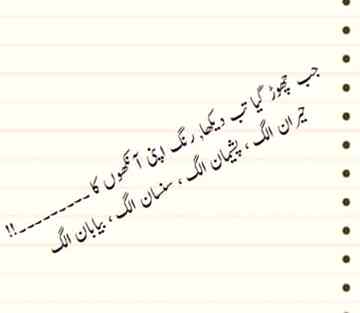 جب چھوڑ گیا تب دیکھا, رنگ اپنی آنکھوں کا ---------!!
حیران الگ، پشیمان الگ، سنسان الگ، بیابان الگ